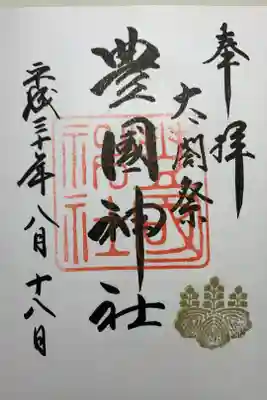 奉拝
太閤祭
豊國神社
豊國神社
平成三十年八月十八日